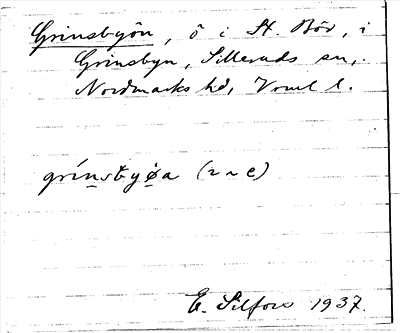 Grinsbyön, ö i St. Bör, i
Grinsbyn, Silleruds sn,
Nordmarks hd, Vrml l.
grínsbyøa (2~e)
E. Silfors 1937.